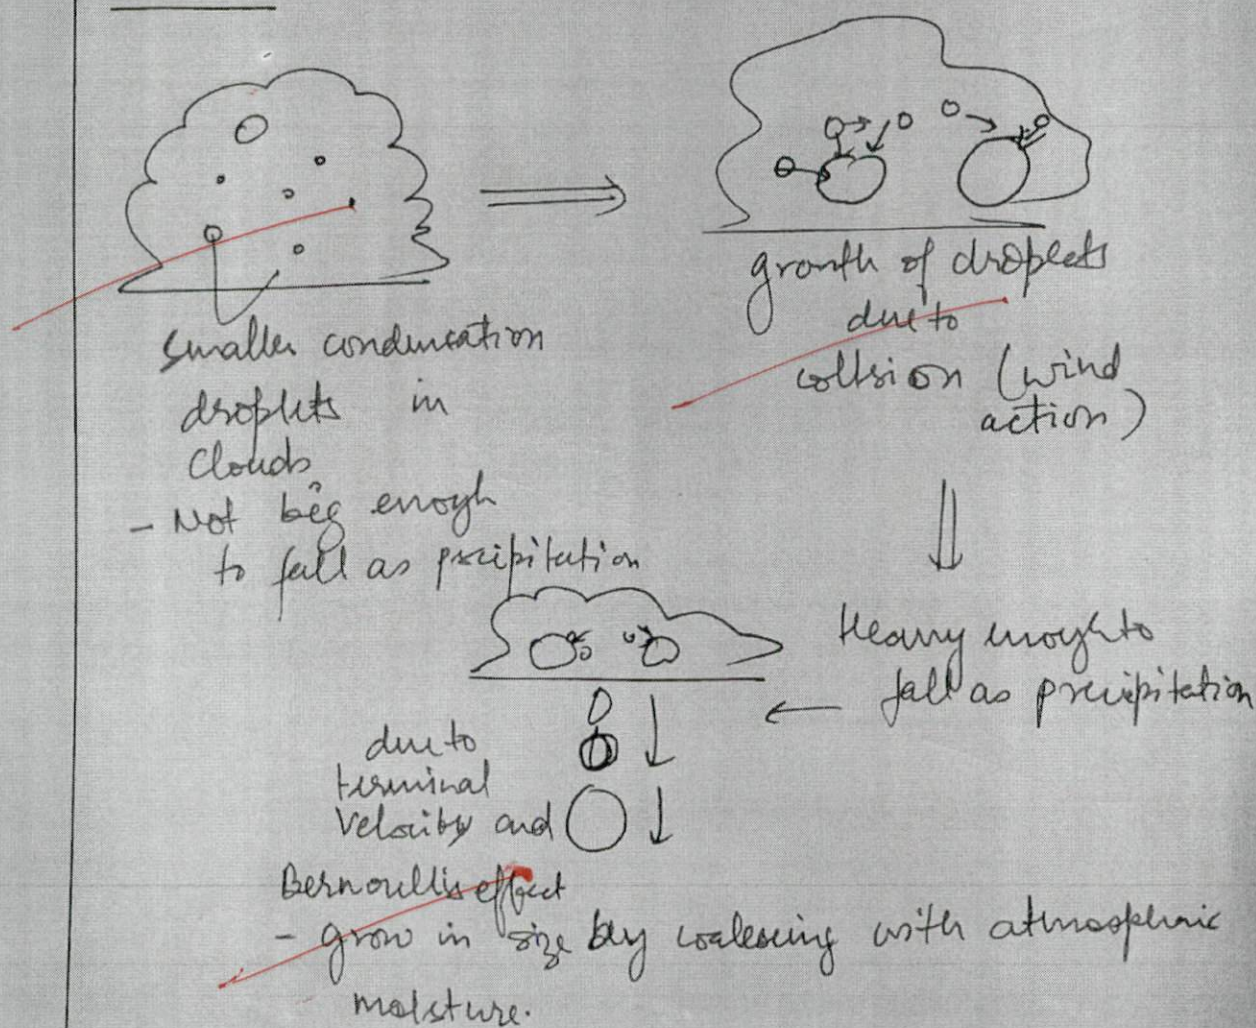 smaller condensation
droplets in
clouds
- Not big enough
to fall as precipitation
growth of droplets
due to
collision (wind
action)
Heavy enough to
fall as precipitation
due to
terminal
velocity and
Bernoulli's effect
- grow in size by coalescing with atmospheric
moisture.